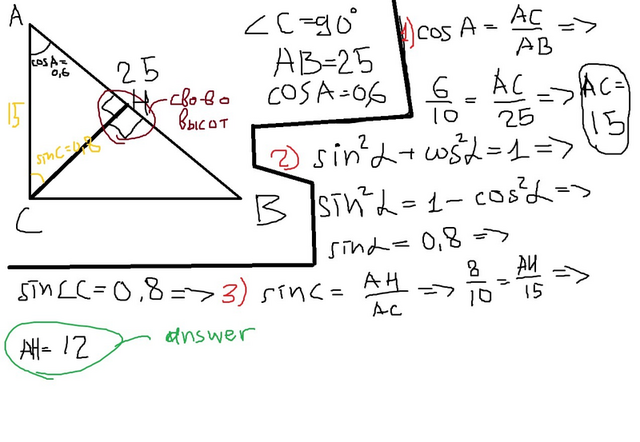 A
cosA=
0,6
25
H
15
sinC=0,8
C
B
св-во
высот
∠C=90°
AB=25
cosA=0,6
1) cosA = AC/AB =>
6/10 = AC/25 => AC=
15
2) sin²α + cos²α = 1 =>
sin²α = 1 - cos²α =>
sinα = 0,8 =>
sin∠C = 0,8 => 3) sinC = AH/AC => 8/10 = AH/15 =>
AH = 12
answer